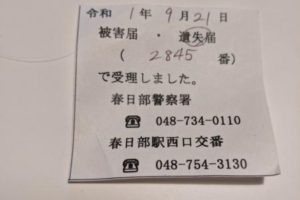 令和 1年 9月 21日
被害届 ・ 遺失届
( 2845 番)
で受理しました。
春日部警察署
☎ 048-734-0110
春日部駅西口交番
☎ 048-754-3130